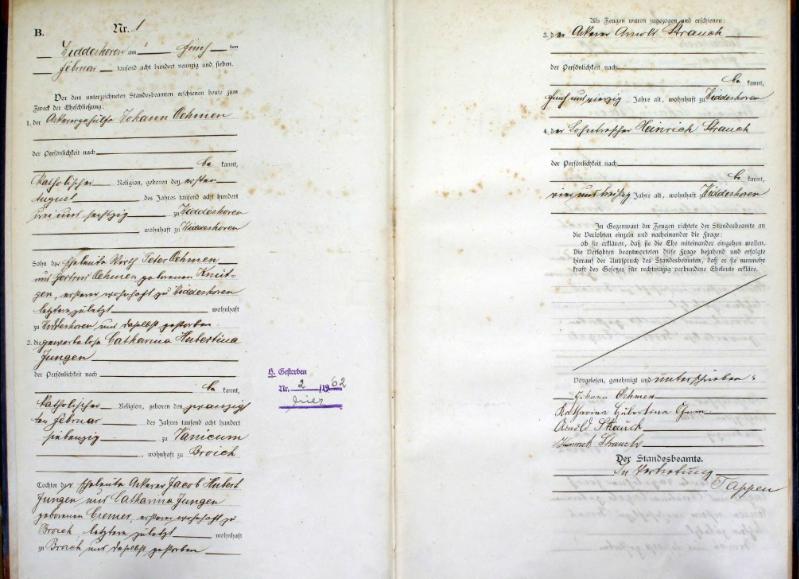 B.
Nr. 1
Hiddeshoven am fünf ten
Februar tausend acht hundert neunzig und sieben.
Vor dem unterzeichneten Standesbeamten erschienen heute zum
Zweck der Eheschließung:
1. der Ackergehülfe Johann Oehmen
der Persönlichkeit nach
be kannt,
katholischer Religion, geboren den ersten
August des Jahres tausend acht hundert
und sechzig zu Hiddeshoven
wohnhaft zu Hiddeshoven
Sohn der Eheleute Peter Oehmen
und Oehmen geborenen
gen, ersterer wohnhaft zu Hiddeshoven
letztere zuletzt wohnhaft
zu Hiddeshoven und daselbst gestorben
2. die gewerbelose Catharina Hubertina
Jungen
der Persönlichkeit nach
be kannt,
katholischer Religion, geboren den zwanzig
ten Februar des Jahres tausend acht hundert
siebenzig zu
wohnhaft zu Broich
Tochter der Eheleute Ackerer Jacob Hubert
Jungen und Catharina Jungen
geborenen Cremer, ersterer wohnhaft zu
Broich letztere zuletzt wohnhaft
zu Broich und daselbst gestorben
H. Gestorben
Nr. 2 /1962
Als Zeugen waren zugezogen und erschienen:
3. der Ackerer Arnold Strauch
der Persönlichkeit nach
be kannt,
fünfundvierzig Jahre alt, wohnhaft zu Hiddeshoven
4. der Heinrich Strauch
der Persönlichkeit nach
be kannt,
vierunddreißig Jahre alt, wohnhaft Hiddeshoven
In Gegenwart der Zeugen richtete der Standesbeamte an
die Verlobten einzeln und nacheinander die Frage:
ob sie erklären, daß sie die Ehe miteinander eingehen wollen.
Die Verlobten beantworteten diese Frage bejahend und erfolgte
hierauf der Ausspruch des Standesbeamten, daß er sie nunmehr
kraft des Gesetzes für rechtmäßig verbundene Eheleute erkläre.
Vorgelesen, genehmigt und unterschrieben
Johann Oehmen
Katharina Hubertina
Arnold Strauch
Heinrich Strauch
Der Standesbeamte.
In Vertretung
Tappen